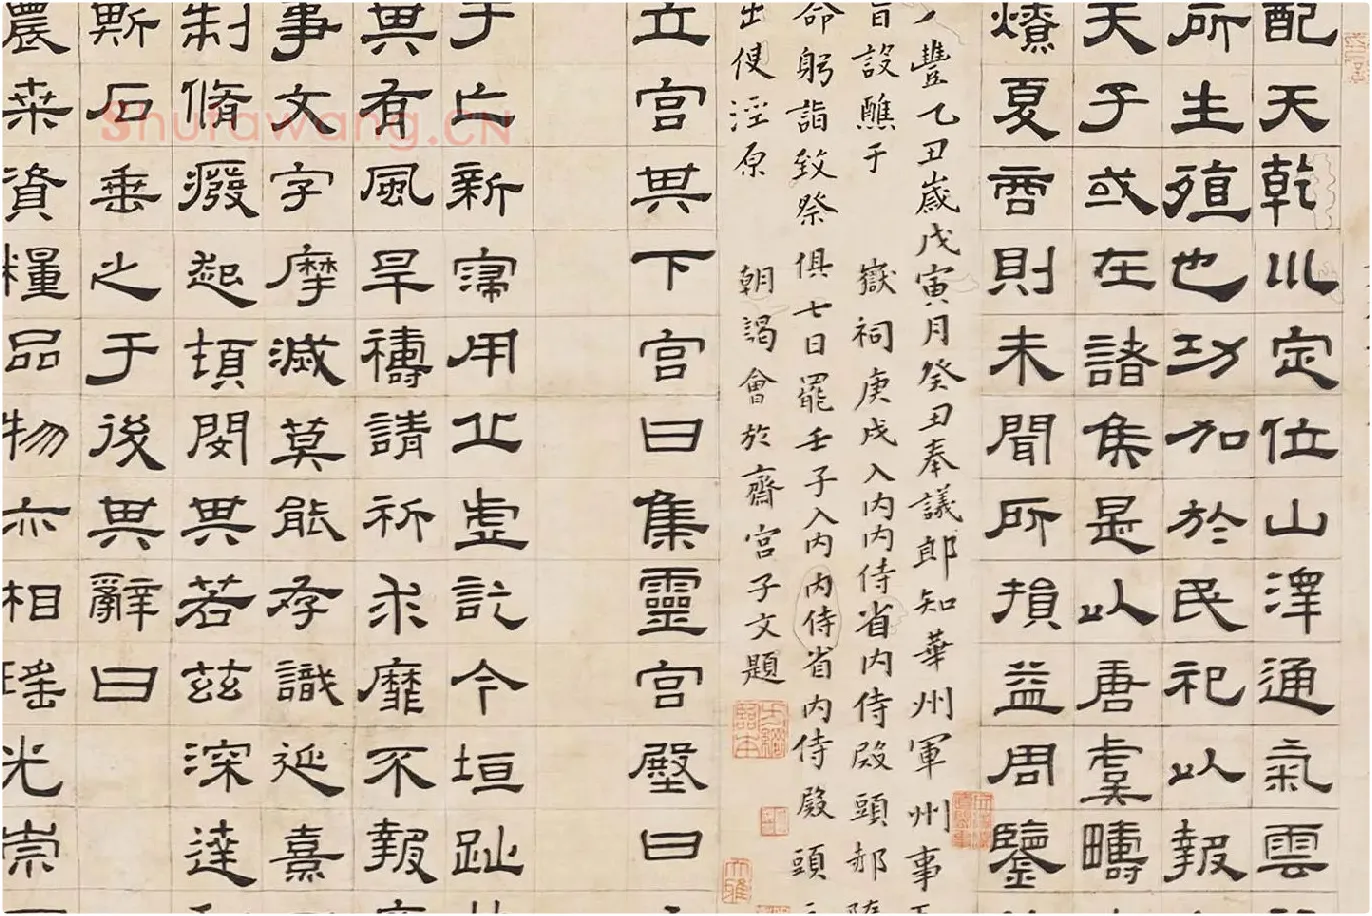 配天乾巛定位山澤通氣雲
所生殖也功加於民祀以報
天子或在諸侯是以唐虞疇
燎夏商則未聞所損益周鑒
豐乙丑歲戊寅月癸丑奉議郎知華州軍州事
旨設醮于 嶽祠庚戌入内内侍省内侍殿頭郝隨
命躬詣致祭俱七日罷壬子入内内侍省内侍殿頭
出使涇原 朝謁會於齋宮子文題
立宮其下宮曰集靈宮壂曰
于亡新寖用丘虛訖今垣趾
其有風旱禱請祈求靡不報
事文字摩滅莫能存識延熹
制脩廢起頓閔其若茲深達
斯石垂之于後其辭曰
農桑資糧品物亦相瑤光崇
Shufawang.CN